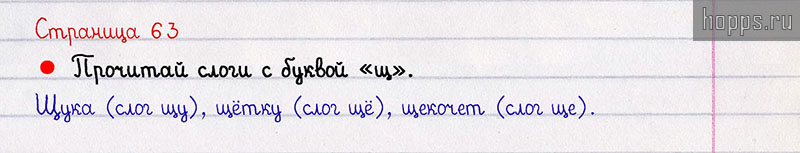 hopps.ru
Страница 63
• Прочитай слоги с буквой «щ».
Щука (слог щу), щётку (слог щё), щекочет (слог ще).